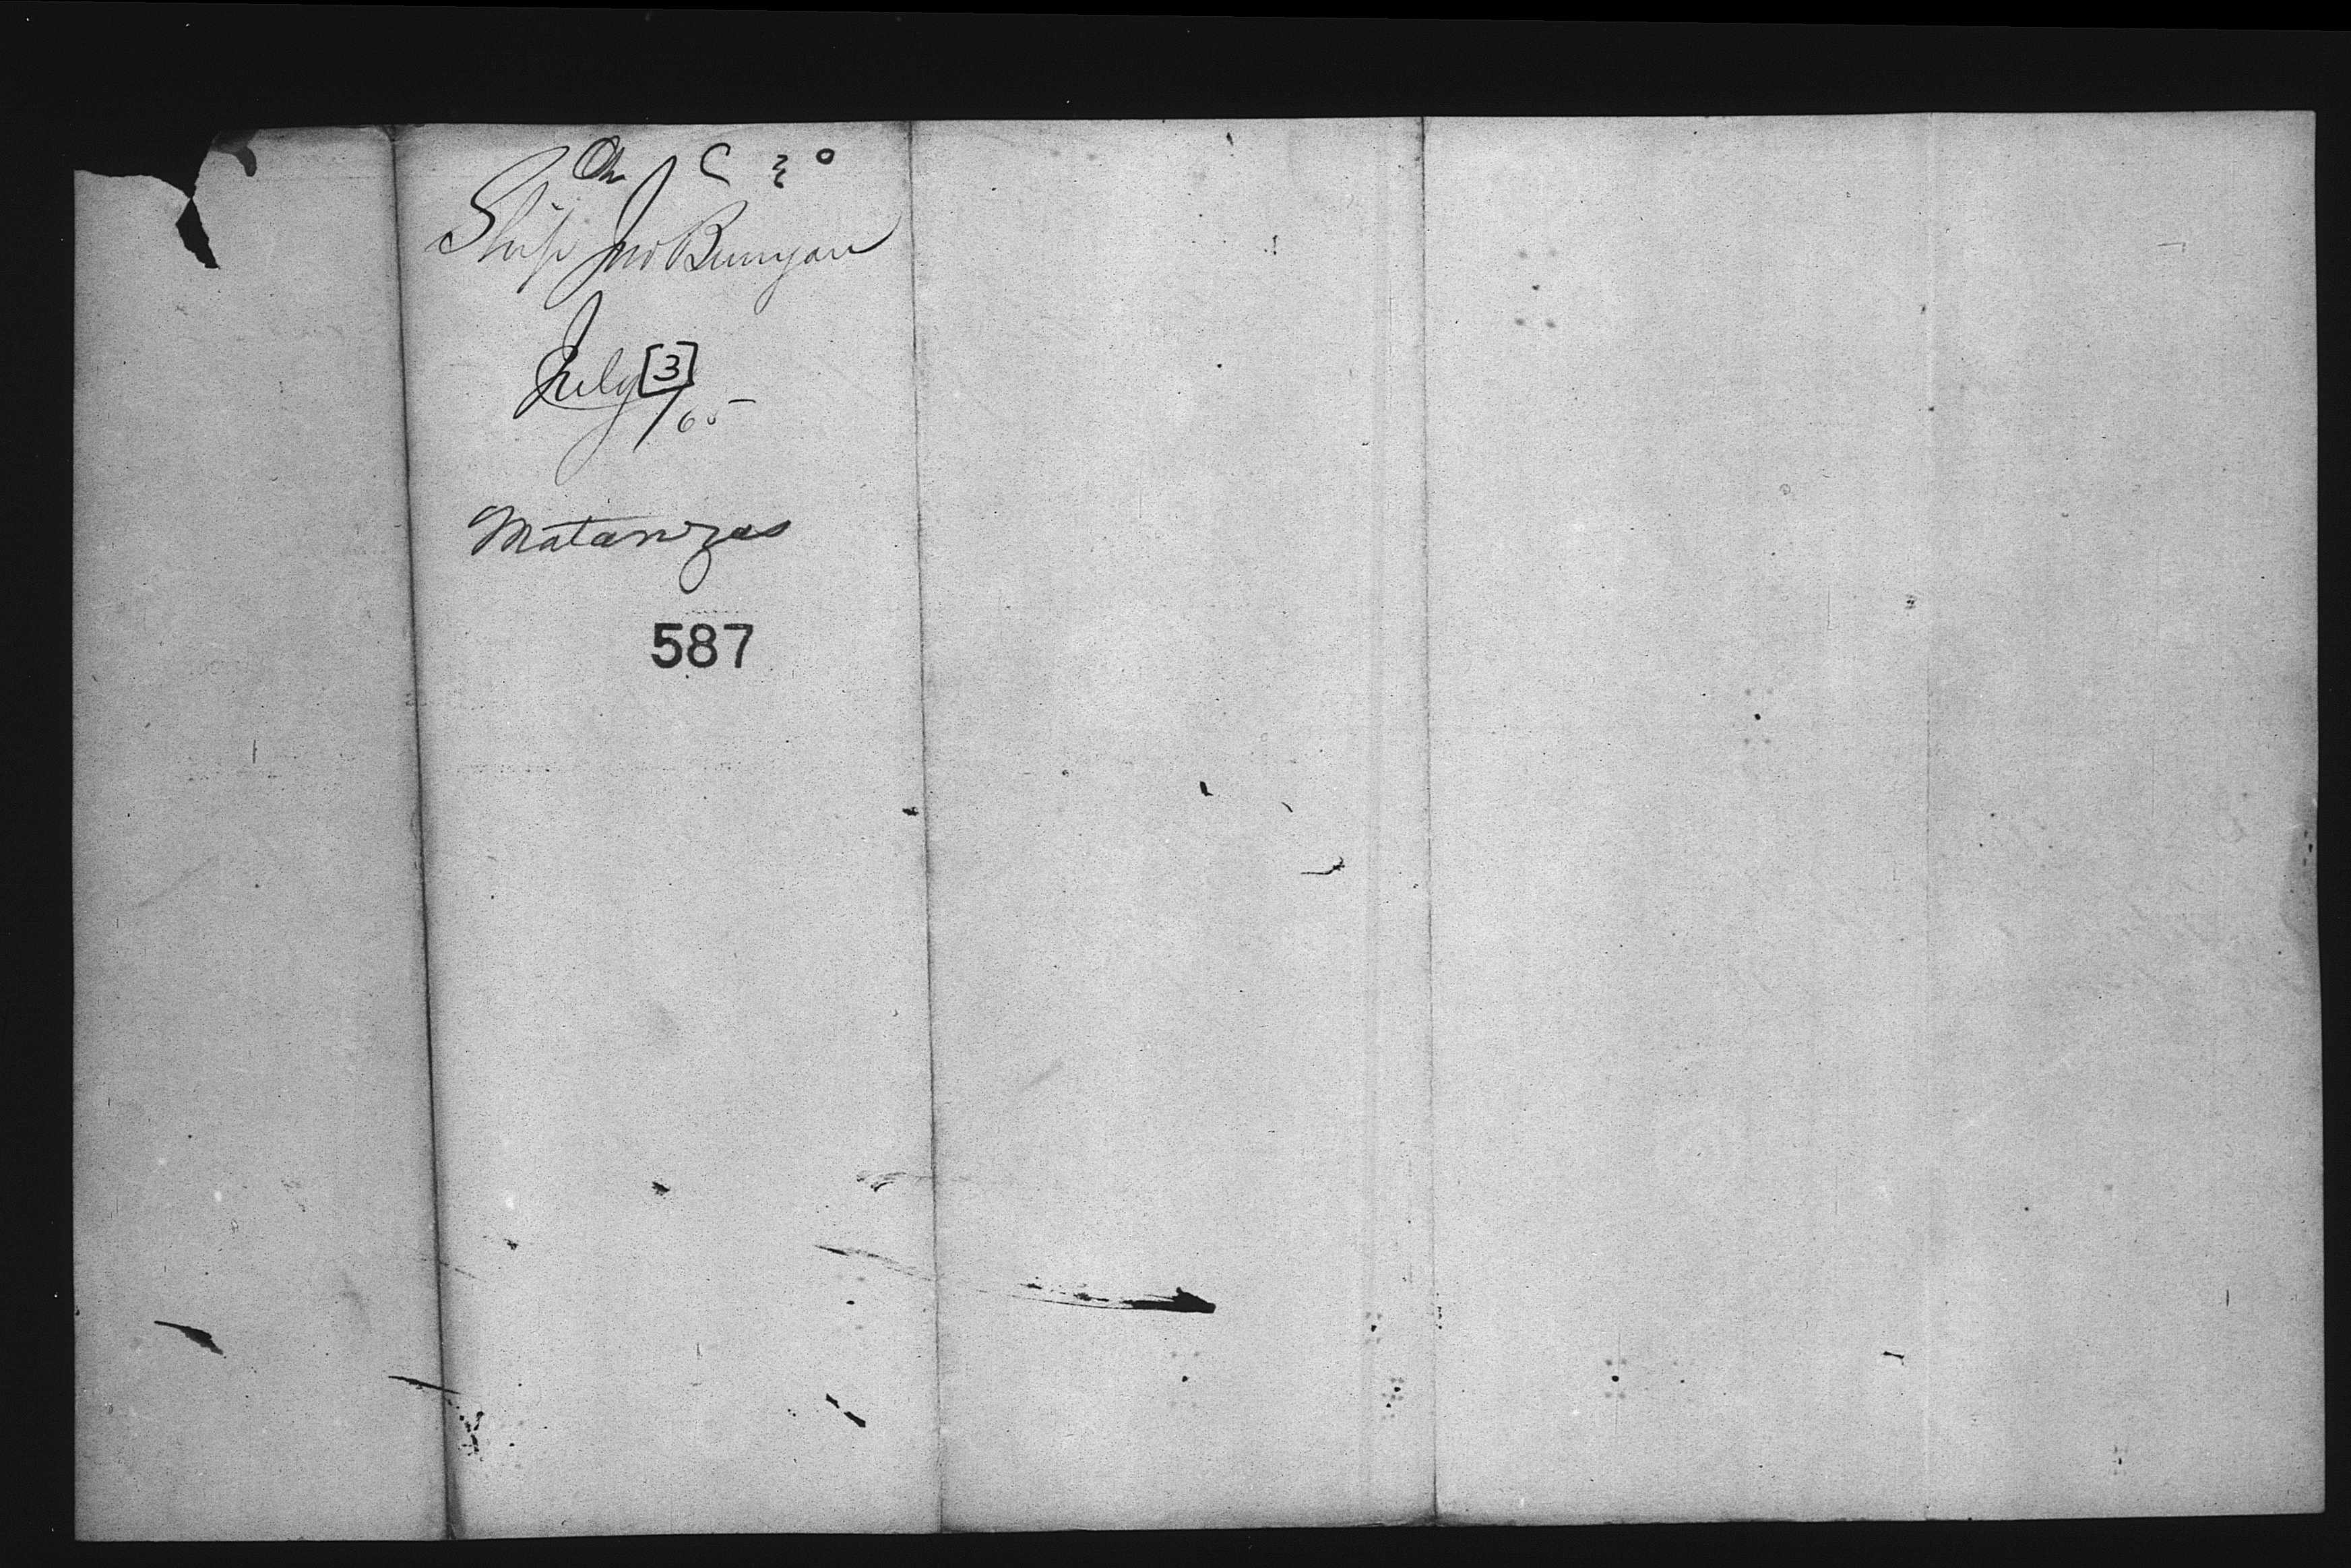 Ship Jno Bunyan
July [3]
/65
Matanzas
587